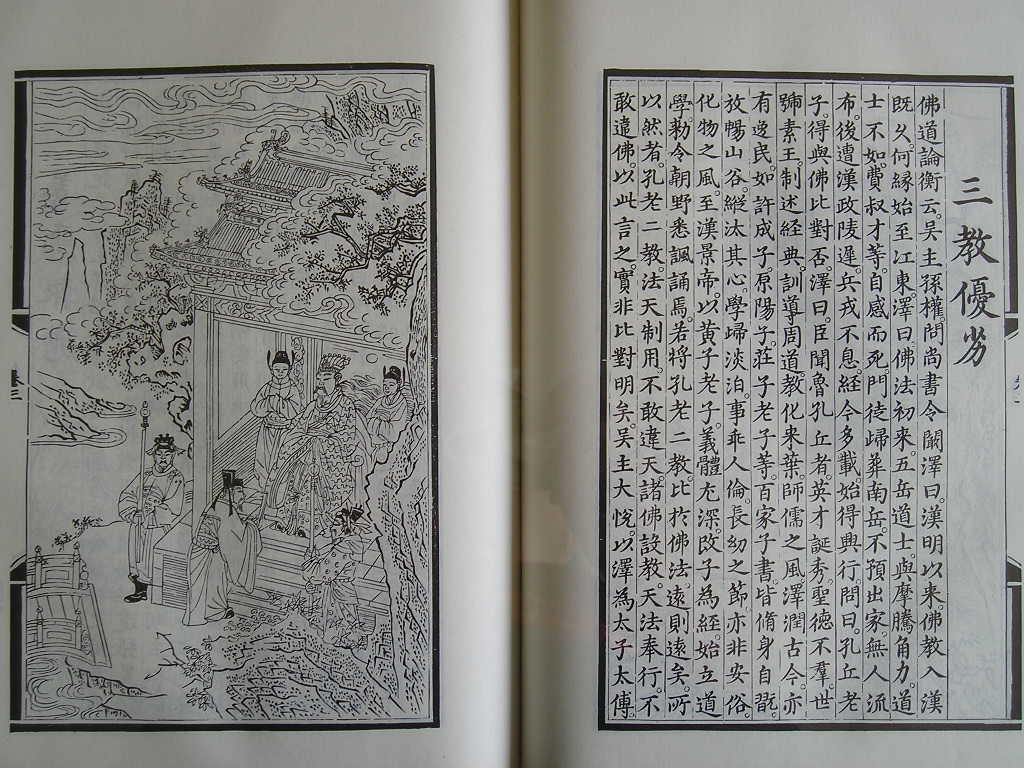 三教優劣
佛道論衡云。吴主孫權。問尚書令闞澤曰。漢明以来。佛教入漢
既久。何緣始至江東。澤曰。佛法初來。五岳道士。與摩騰角力。道
士不如。費叔才等。自感而死。門徒歸葬南岳。不預出家。無人流
布。後遭漢政陵遲。兵戎不息。經今多載。始得興行。問曰。孔丘老
子。得與佛比對否。澤曰。臣聞魯孔丘者。英才誕秀。聖德不羣。世
號素王。制述經典。訓導周道。教化來葉。師儒之風。澤潤古今。亦
有逸民。如許成子。原陽子。莊子老子等。百家子書。皆脩身自翫。
放暢山谷。縱汰其心。學歸淡泊。事乖人倫。長幼之節。亦非安俗
化物之風。至漢景帝。以黄子老子。義體尤深。改子為經。始立道
學。勅令朝野悉諷誦焉。若將孔老二教。比於佛法。遠則遠矣。所
以然者。孔老二教。法天制用。不敢違天。諸佛設教。天法奉行。不
敢違佛。以此言之。實非比對明矣。吴主大悦。以澤為太子太傅。
卷三